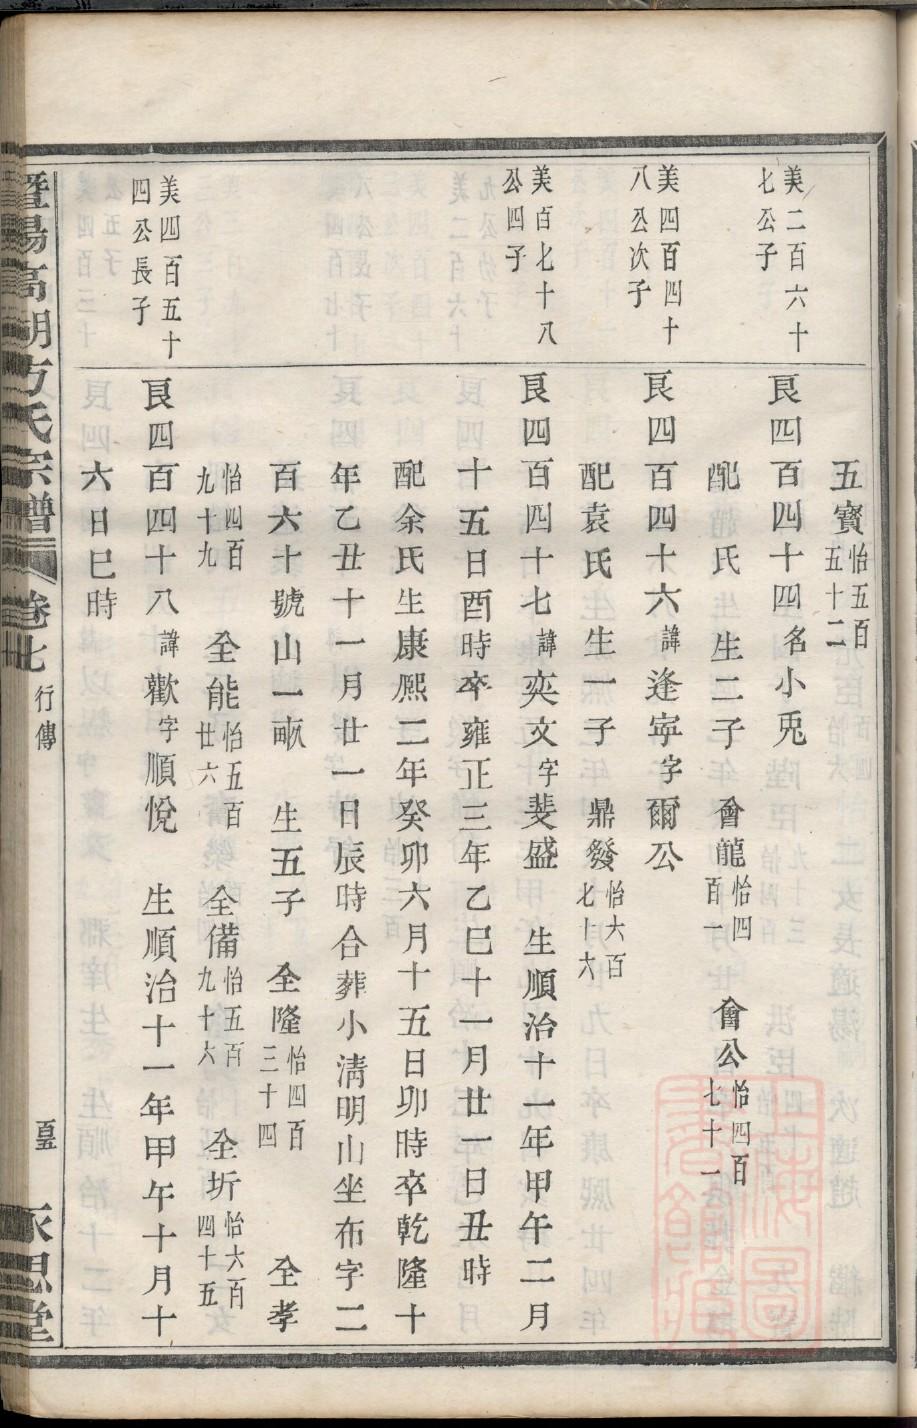 五寶怡五百五十二
美二百六十七公子
艮四百四十四名小兎
配 氏生二子 會龍怡四百一 會公怡四百七十一
美四百四十八公次子
艮四百四十六諱逢寜字爾公
配袁氏生一子 鼎發怡六百七十六
美百七十八公四子
艮四百四十七諱奕文字斐盛 生順治十一年甲午二月
十五日酉時卒雍正三年乙巳十一月廿一日丑時
配余氏生康熈二年癸卯六月十五日卯時卒乾隆十
年乙丑十一月廿一日辰時合葬小淸明山坐布字二
百六十號山一畝 生五子 全隆怡四百三十四 全孝
怡四百九十九 全能怡五百廿六 全備怡五百九十六 全圻怡六百四十五
美四百五十四公長子
艮四百四十八諱歡字順悅 生順治十一年甲午十月十
六日巳時
暨陽高湖方氏宗譜 卷七 行傳 永思堂